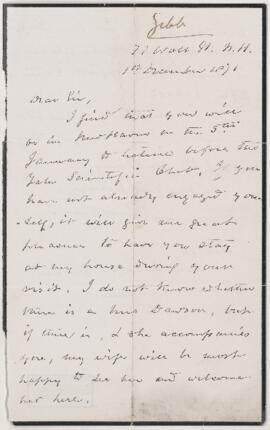 Gibb
72 Wall St. N. H.
1st December 1871
Dear Sir,
I find that you will
be in New Haven on the 5th
January to lecture before the
Yale Scientific Club. If you
have not already engaged your-
self, it will give me great
pleasure to have you stay
at my house during your
visit. I do not know whether
there is a Mrs Dawson, but
if there is, & she accompanies
you, my wife will be most
happy to see her and welcome
her here.